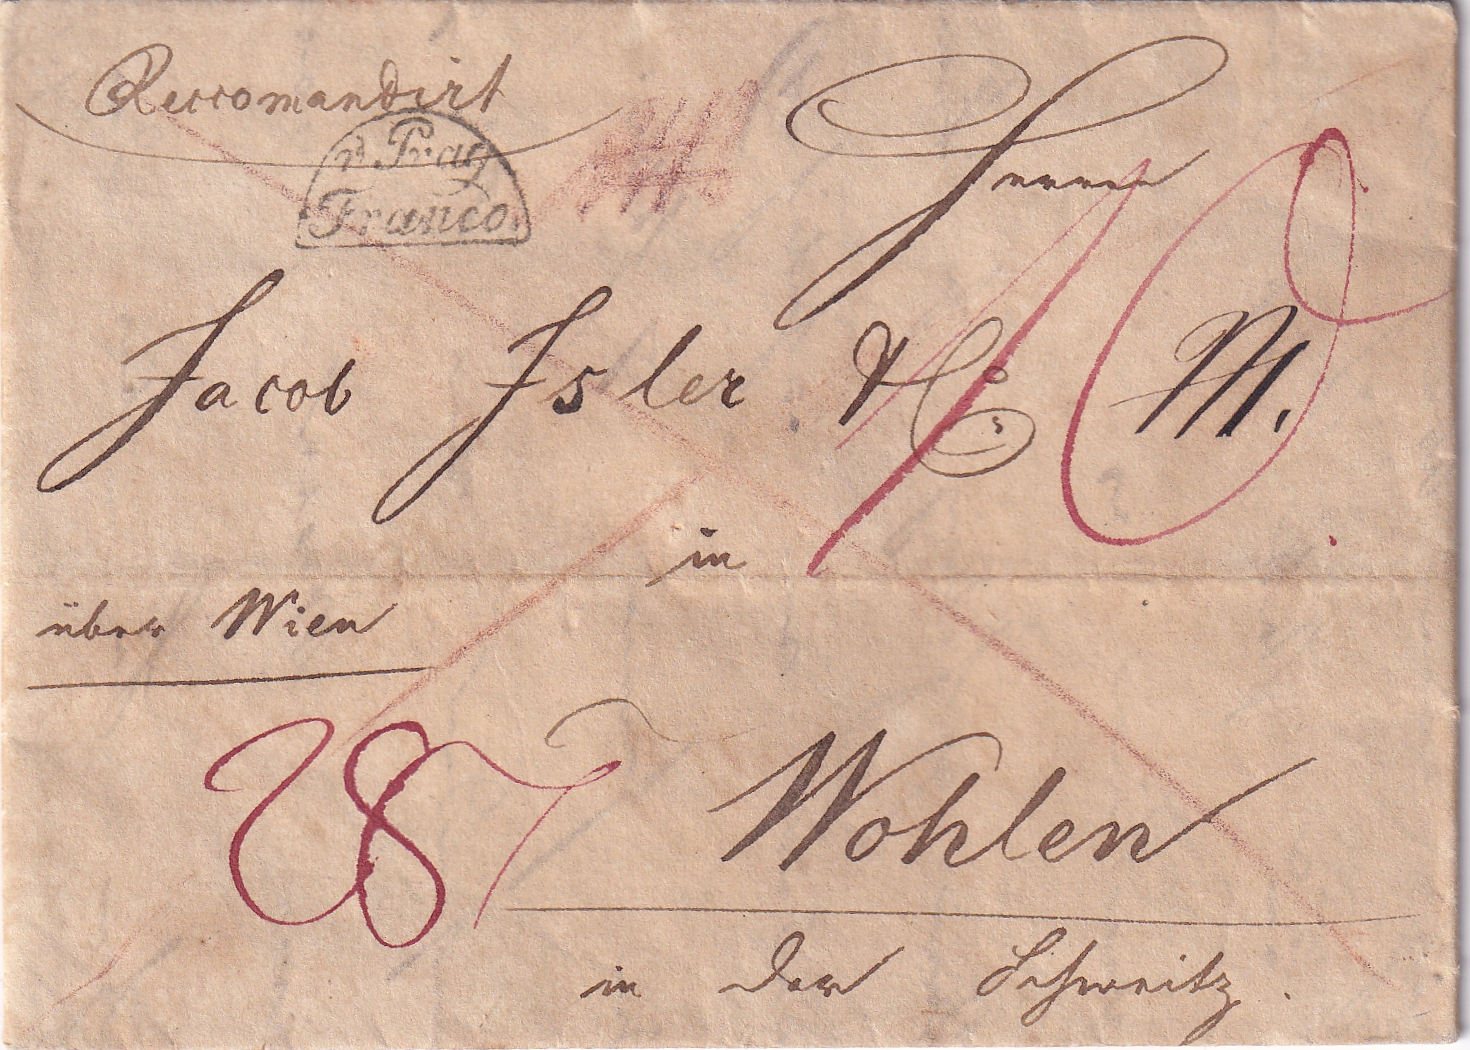 Reccomandirt
v. Prag
Franco.
Herrn
Jacob Isler & C: M.
10
in
über Wien
287
Wohlen
in der Schweitz.